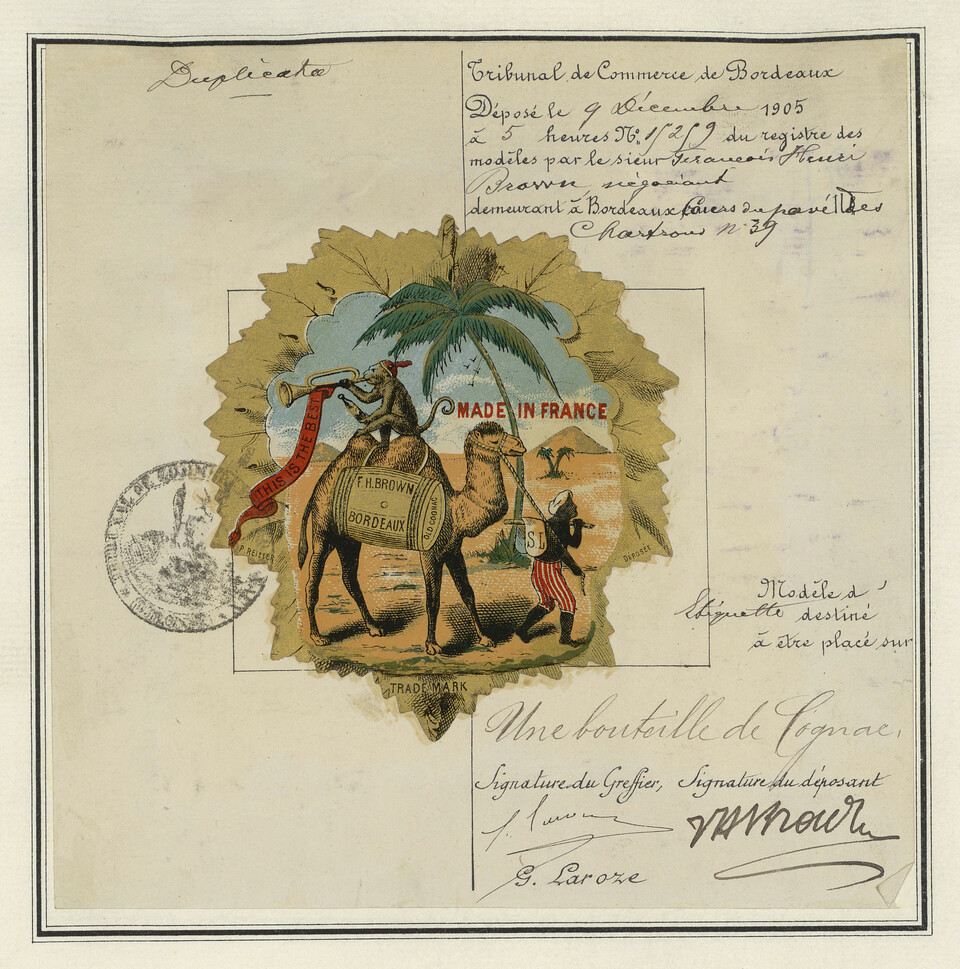 Duplicata
Tribunal de Commerce de Bordeaux
Déposé le 9 Décembre 1905
à 5 heures No. 15259 du registre des
modèles par le sieur Francois Henri
Brown, négociant
demeurant à Bordeaux Cours du pavé des
Chartrons n. 39
MADE IN FRANCE
THIS IS THE BEST
F.H. BROWN
BORDEAUX
OLD COGNAC
S L
P. REISSER
DEPOSÉE
TRADE MARK
Modèle d'
Etiquette destiné
à être placé sur
Une bouteille de Cognac.
Signature du Greffier, Signature du déposant
G. Laroze